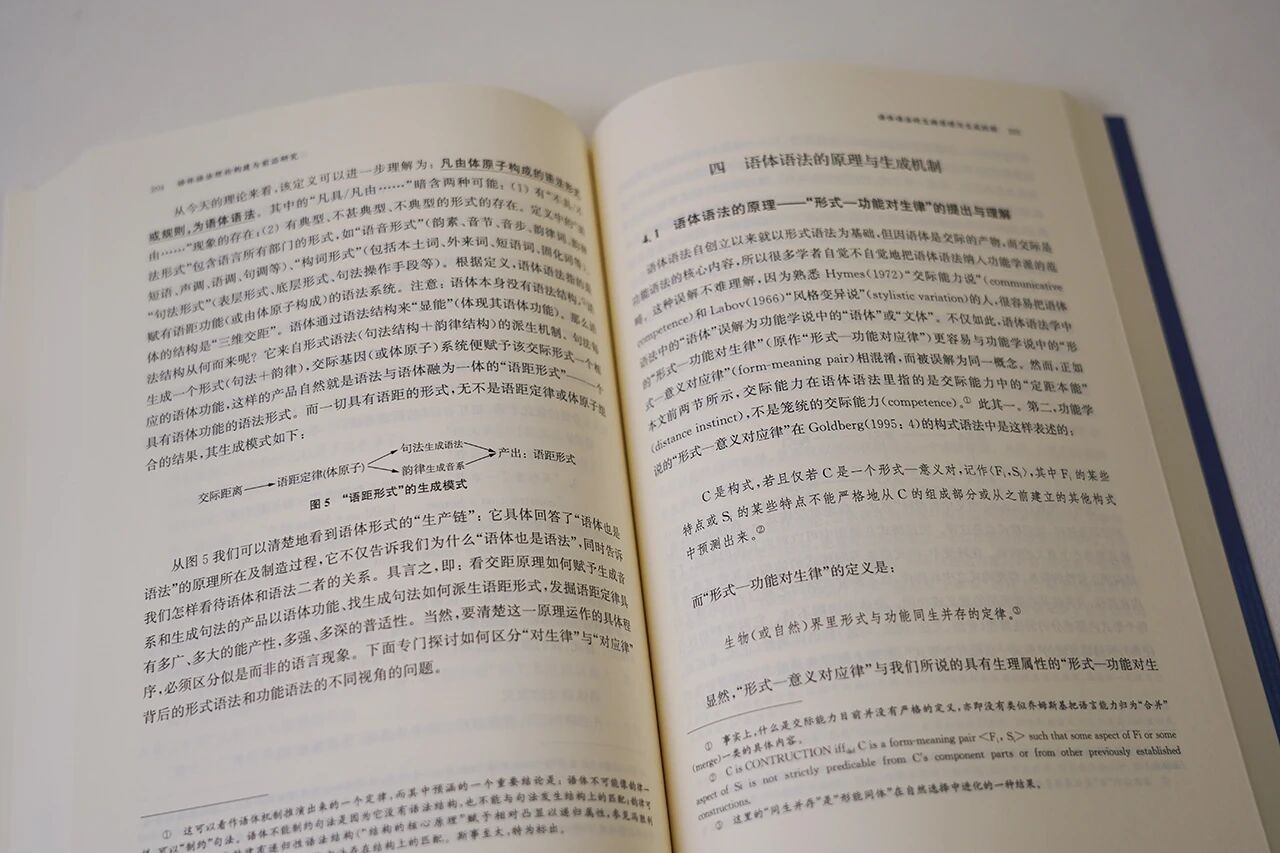 语体语法理论构建与前沿研究
从今天的理论来看,该定义可以进一步理解为:凡由体原子构成的语法形式
或规则,为语体语法。其中的“凡具/凡由……”暗含两种可能:(1)有“不具/不
由……”现象的存在;(2)有典型、不甚典型、不典型的形式的存在。定义中的“语
法形式”包含语言所有部门的形式,如“语音形式”(韵素、音节、音步、韵律词、韵律
短语、声调、语调、句调等)、“构词形式”(包括本土词、外来词、短语词、固化词等)、
“句法形式”(表层形式、底层形式、句法操作手段等)。根据定义,语体语法指的是
赋有语距功能(或由体原子构成)的语法系统。注意:语体本身没有语法结构,语
体的结构是“三维交距”。语体通过语法结构来“显能”(体现其语体功能)。那么语
法结构从何而来呢?它来自形式语法(句法结构+韵律结构)的派生机制。句法每
生成一个形式(句法+韵律),交际基因(或体原子)系统便赋予该交际形式一个相
应的语体功能,这样的产品自然就是语法与语体融为一体的“语距形式”——一个
具有语体功能的语法形式。而一切具有语距的形式,无不是语距定律或体原子组
合的结果,其生成模式如下:
句法生成语法
交际距离 语距定律(体原子) 产出:语距形式
韵律生成音系
图5 “语距形式”的生成模式
从图5我们可以清楚地看到语体形式的“生产链”:它具体回答了“语体也是
语法”的原理所在及制造过程,它不仅告诉我们为什么“语体也是语法”,同时告诉
我们怎样看待语体和语法二者的关系。具言之,即:看交距原理如何赋予生成音
系和生成句法的产品以语体功能、找生成句法如何派生语距形式,发掘语距定律具
有多广、多大的能产性,多强、多深的普适性。当然,要清楚这一原理运作的具体程
序,必须区分似是而非的语言现象。下面专门探讨如何区分“对生律”与“对应律”
背后的形式语法和功能语法的不同视角的问题。
① 这可以看作语体机制推演出来的一个定律,而其中预涵的一个重要结论是:语体不可能像韵律一
可以“制约”句法。语体不能制约句法是因为它没有语法结构,也不能与句法发生结构上的匹配;韵律可
有递归性语法结构(“结构的核心原理”赋予相对凸显以递归属性,参见冯胜利
存在结构上的匹配。斯事至大,特为标出。
四 语体语法的原理与生成机制
4.1 语体语法的原理——“形式—功能对生律”的提出与理解
语体语法自创立以来就以形式语法为基础,但因语体是交际的产物,而交际是
功能语法的核心内容,所以很多学者自觉不自觉地把语体语法纳入功能学派的范
畴。这种误解不难理解,因为熟悉 Hymes(1972)“交际能力说”(communicative
competence)和 Labov(1966)“风格变异说”(stylistic variation)的人,很容易把语体
语法中的“语体”误解为功能学说中的“语体”或“文体”。不仅如此,语体语法学中
的“形式—功能对生律”(原作“形式—功能对应律”)更容易与功能学说中的“形
式—意义对应律”(form-meaning pair)相混淆,而被误解为同一概念。然而,正如
本文前两节所示,交际能力在语体语法里指的是交际能力中的“定距本能”
(distance instinct),不是笼统的交际能力(competence)。① 此其一。第二,功能学
说的“形式—意义对应律”在 Goldberg(1995:4)的构式语法中是这样表述的:
C是构式,若且仅若C是一个形式—意义对,记作⟨Fᵢ,Sᵢ⟩,其中Fᵢ的某些
特点或Sᵢ的某些特点不能严格地从C的组成部分或从之前建立的其他构式
中预测出来。②
而“形式—功能对生律”的定义是:
生物(或自然)界里形式与功能同生并存的定律。③
显然,“形式—意义对应律”与我们所说的具有生理属性的“形式—功能对生
① 事实上,什么是交际能力目前并没有严格的定义,亦即没有类似乔姆斯基把语言能力归为“合并”
(merge)一类的具体内容。
② C is CONTRUCTION iff def C is a form-meaning pair <Fᵢ, Sᵢ> such that some aspect of Fi or some
aspect of Si is not strictly predicable from C's component parts or from other previously established
constructions.
③ 这里的“同生并存”是“形能同体”在自然选择中进化的一种结果。